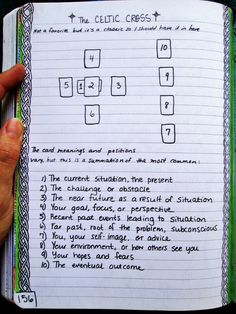 The CELTIC CROSS
Not a favorite but it's a classic so I should have it in here
4
10
5 1 2 3
9
6
8
7
The card meanings and positions
vary, but this is a summation of the most common:
1) The current situation, the present
2) The challenge or obstacle
3) The near future as a result of situation
4) Your goal, focus, or perspective
5) Recent past events leading to situation
6) Far past, root of the problem, subconscious
7) You, your self-image, or advice
8) Your environment, or how others see you
9) Your hopes and fears
10) The eventual outcome
156